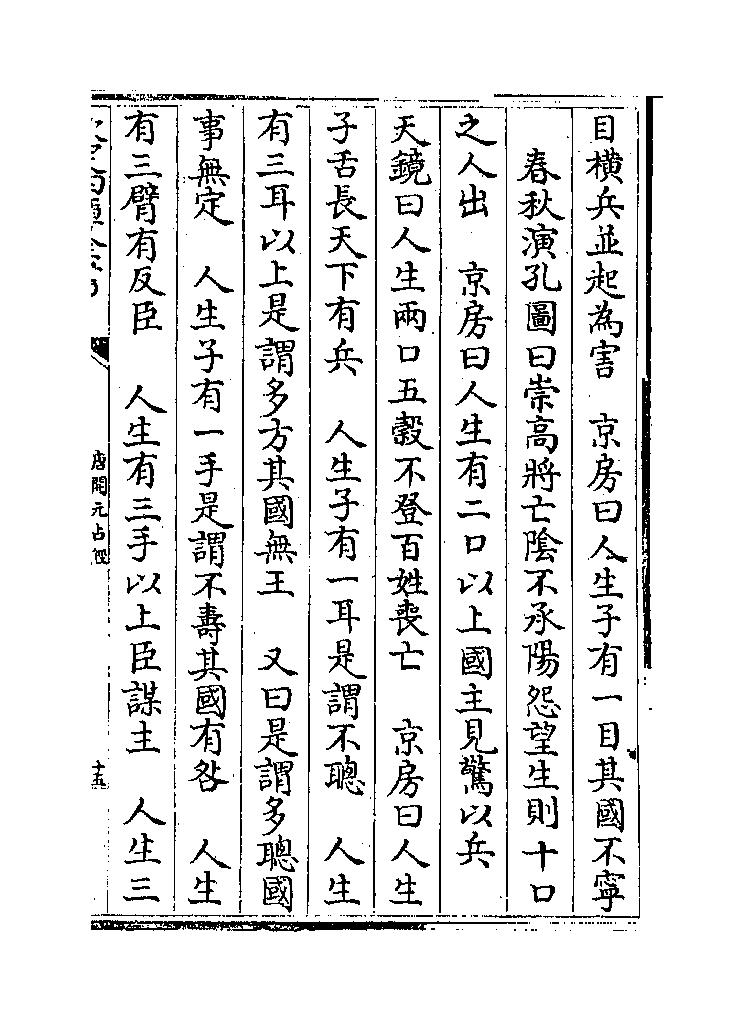 目橫兵並起為害　京房曰人生子有一目其國不寧
春秋演孔圖曰崇高將亡陰不承陽怨望生則十口
之人出　京房曰人生有二口以上國主見驚以兵
天鏡曰人生兩口五穀不登百姓喪亡　京房曰人生
子舌長天下有兵　人生子有一耳是謂不聰　人生
有三耳以上是謂多方其國無王　又曰是謂多聰國
事無定　人生子有一手是謂不壽其國有咎　人生
有三臂有反臣　人生有三手以上臣謀主　人生三
唐開元占經
十五